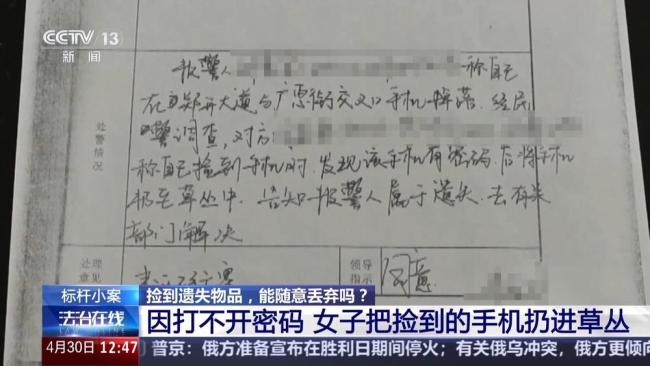 CCTV 13
新闻
报警人 称自己
在 郑开大道与广惠街交叉口手机掉落,经民
警调查,对方
称自己捡到手机时,发现该手机有密码,后将手机
扔至草丛中,告知报警人属于遗失,去有关
部门解决
处警情况
处理
意见
领导
指示
同意
标杆小案 捡到遗失物品,能随意丢弃吗?
法治在线 因打不开密码 女子把捡到的手机扔进草丛
4月30日 12:47 普京:俄方准备宣布在胜利日期间停火;有关俄乌冲突,俄方更倾向